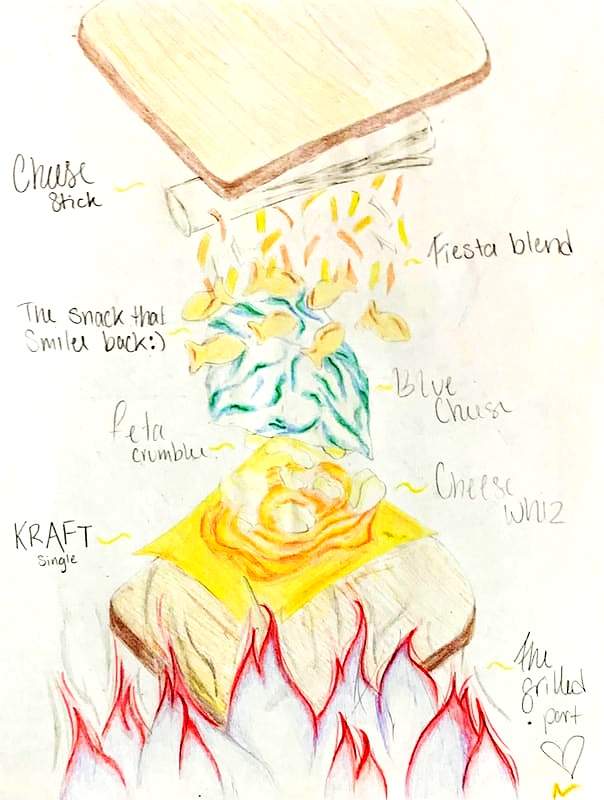 Cheese
Stick
Fiesta blend
The snack that
Smiles back:)
Blue
Cheese
feta
crumble
Cheese
whiz
KRAFT
single
the
grilled
part